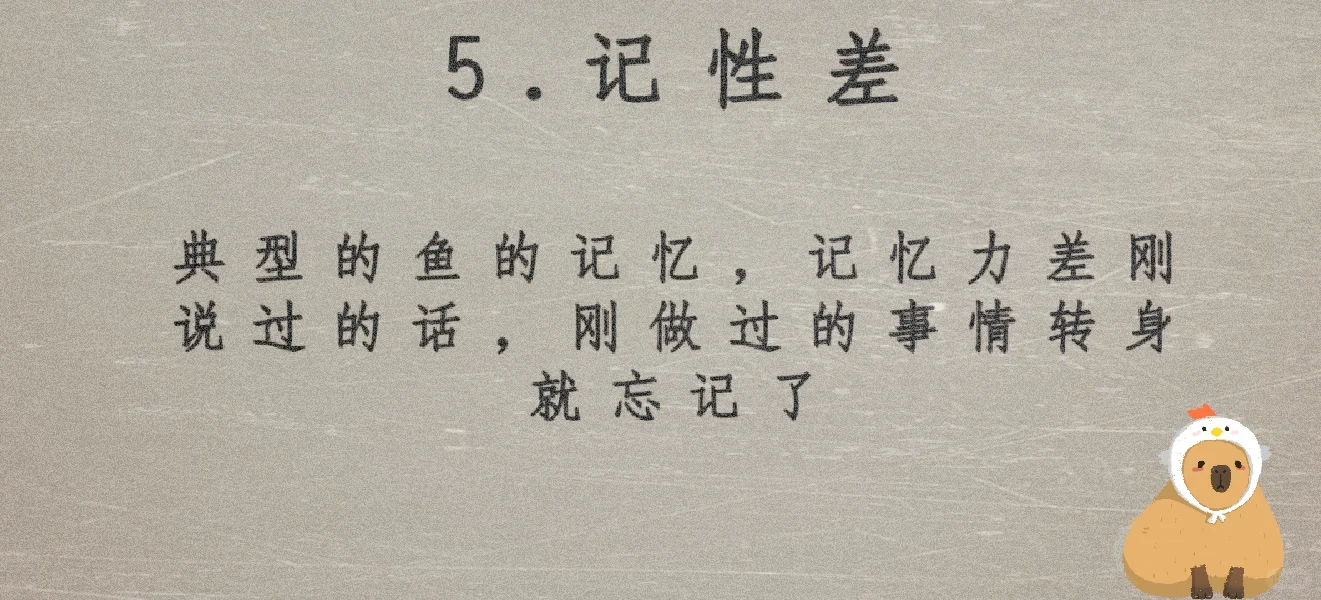 5.记性差
典型的鱼的记忆，记忆力差刚
说过的话，刚做过的事情转身
就忘记了